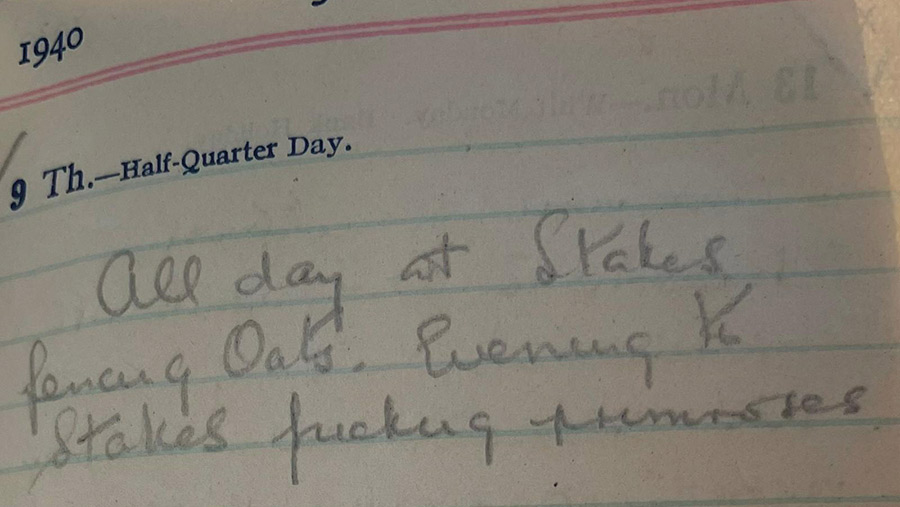 1940
9 Th.—Half-Quarter Day.
All day at Stakes
fencing Oats. Evening K
Stakes picking primroses